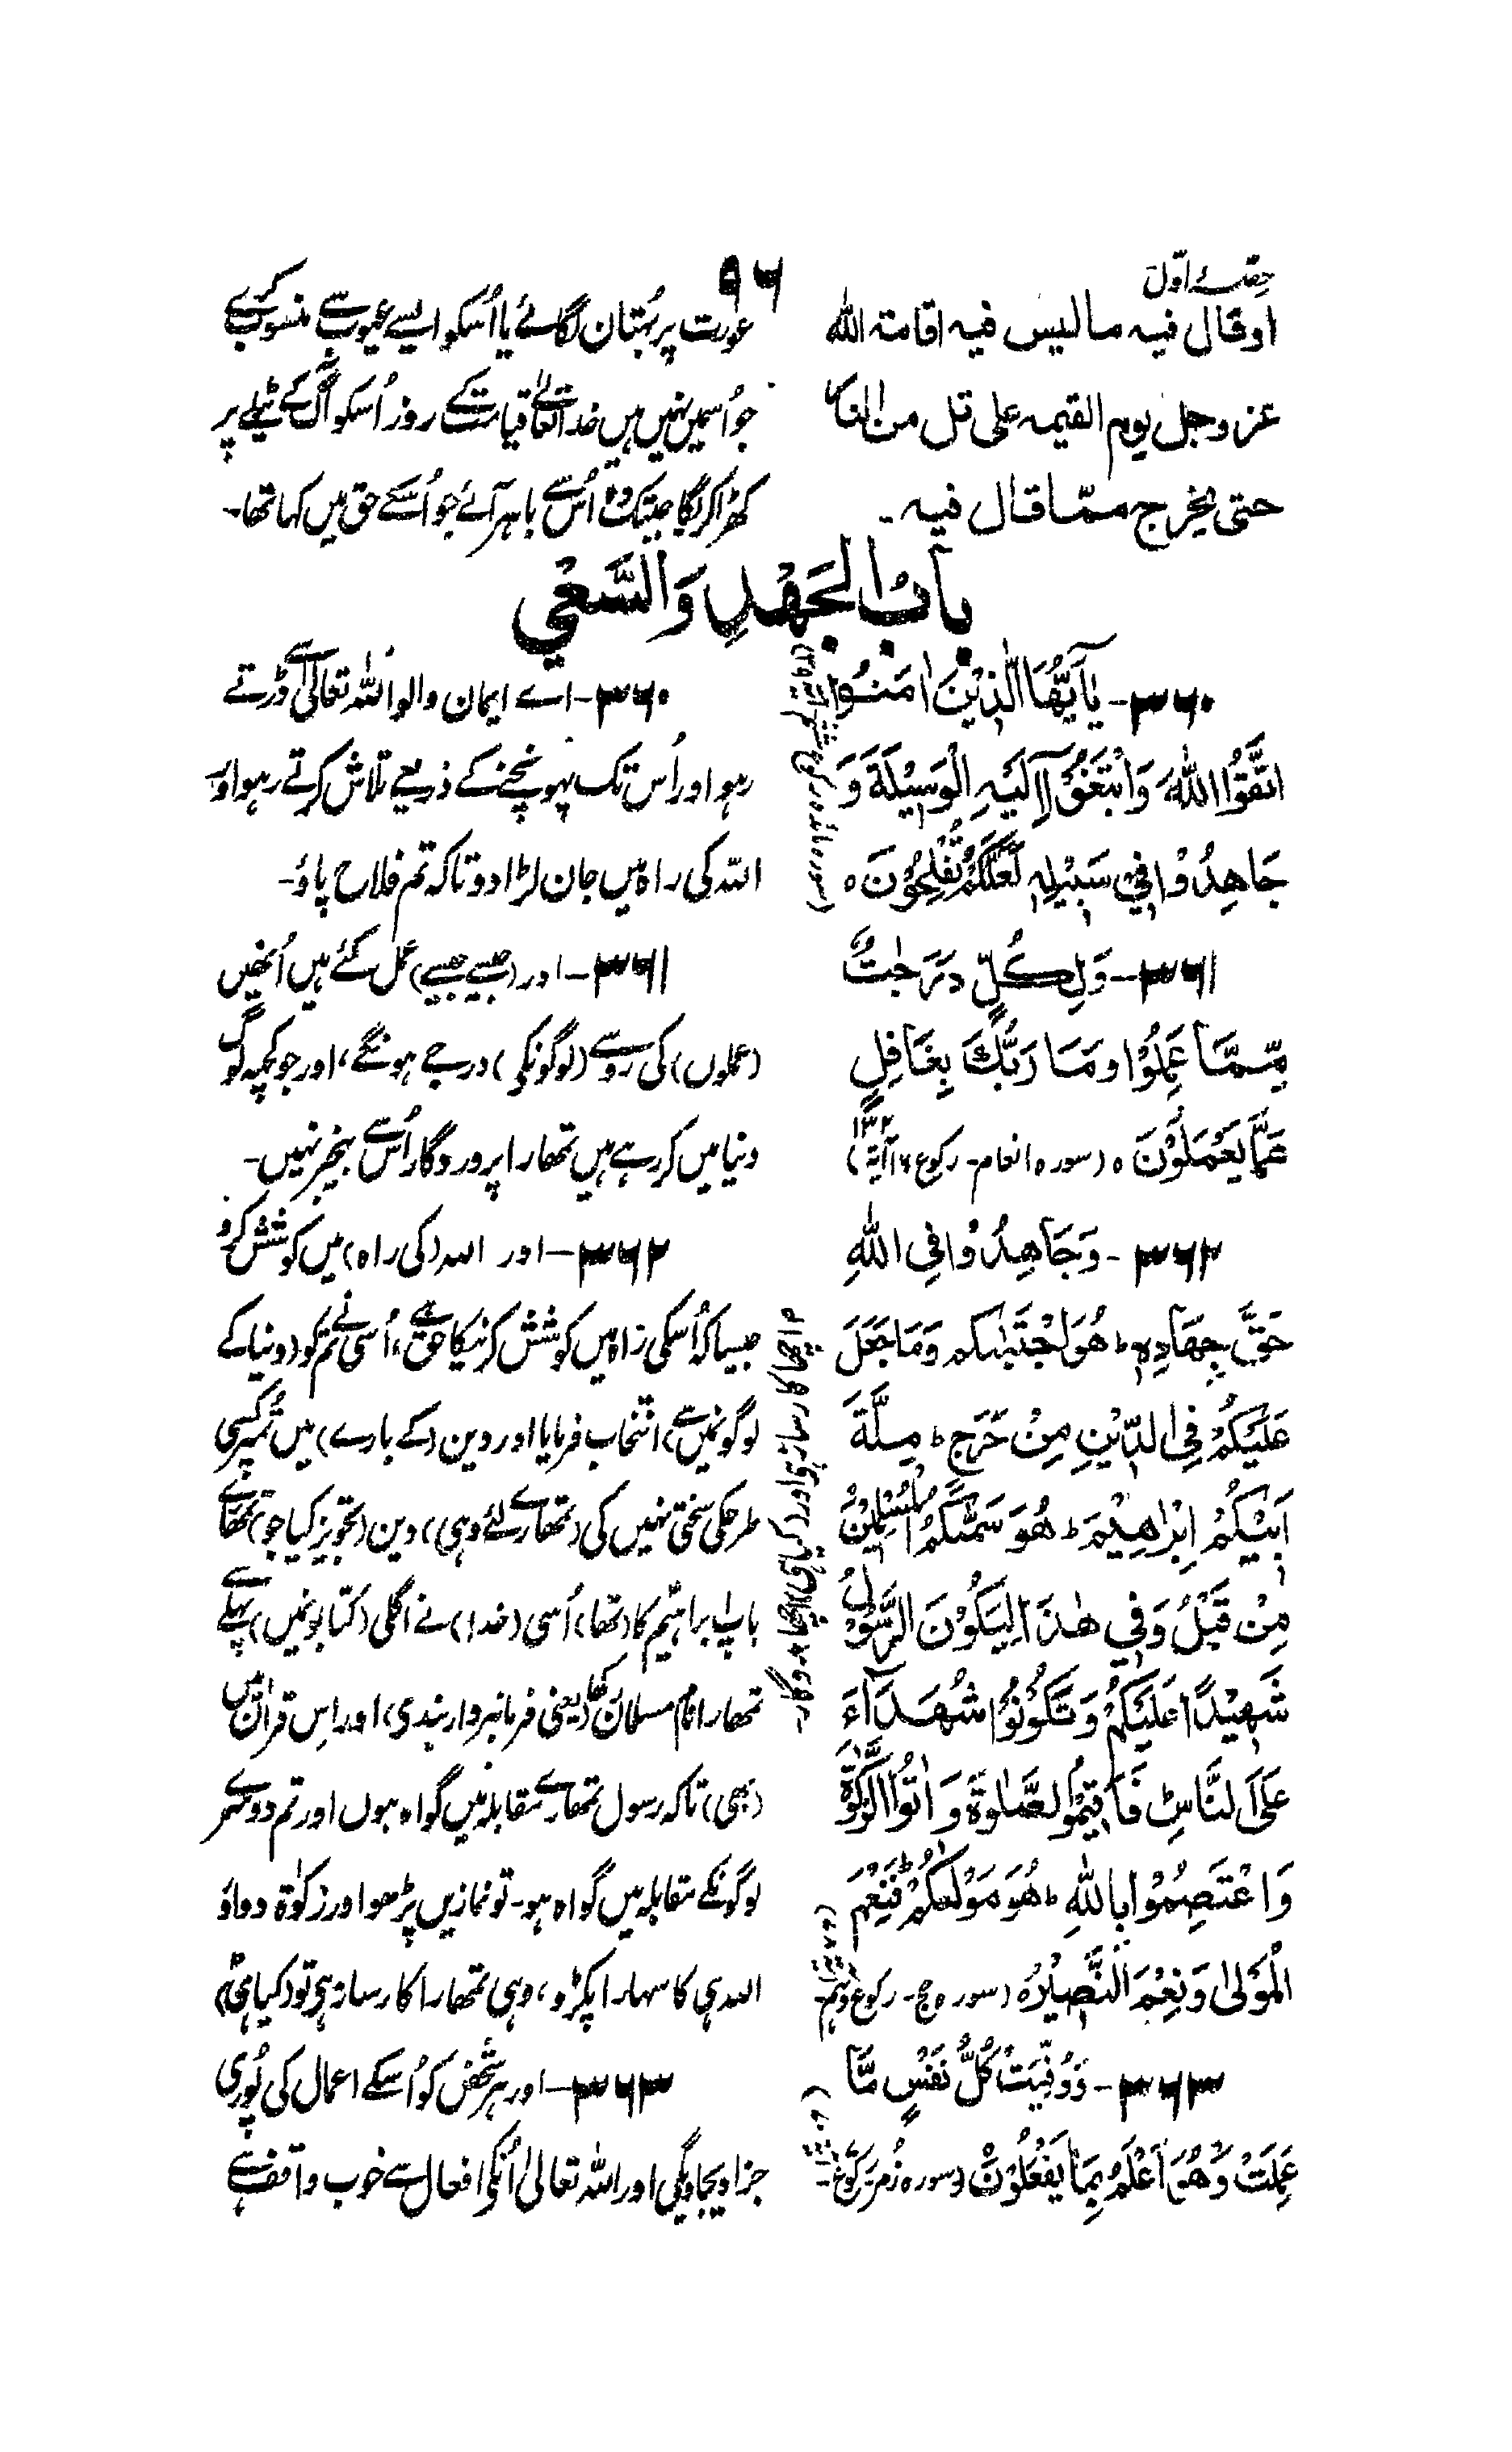 حصّہ اوّل
۹۶
اوقال فیہ مالیس فیہ اقامتہ اللہ
عز وجل یوم القیمہ علی تل من النار
حتی یخرج ممّا قال فیہ۔
عورت پر بُہتان لگائے یا اُسکو ایسے عیوب سے منسوب کرے
جو اُسمیں نہیں ہیں خدا تعالےٰ قیامت کے روز اُسکو آگ کے ٹیلے پر
کھڑا کریگا جبتک وہ اُس سے باہر آئے جو اُسکے حق میں کہا تھا۔
بَابُ الجَهْدِ وَالسَّعْيِ
۳۶۰۔ یٰاَیُّهَا الَّذِیْنَ اٰمَنُوا
اتَّقُوا اللّٰهَ وَابْتَغُوْآ اِلَیْهِ الْوَسِیْلَةَ وَ
جَاهِدُوْا فِیْ سَبِیْلِهٖ لَعَلَّکُمْ تُفْلِحُوْنَ ہ
(سورہ مائدہ رکوع ششم آیۃ ۳۵)
۳۶۰۔ اے ایمان والو اللہ تعالیٰ سے ڈرتے
رہو اور اُس تک پہونچنے کے ذریعے تلاش کرتے رہو اور
اللہ کی راہ میں جان لڑا دو تاکہ تم فلاح پاؤ۔
۳۶۱۔ وَلِکُلٍّ دَرَجٰتٌ
مِّمَّا عَمِلُوْا وَمَا رَبُّكَ بِغَافِلٍ
عَمَّا یَعْمَلُوْنَ ہ (سورہ انعام۔ رکوع ۱۶ آیۃ ۱۳۲)
۳۶۱۔ اور (جیسے جیسے) عمل کئے ہیں اُنھیں
(عملوں) کی رو سے (لوگونکے) درجے ہونگے، اور جو کچھ لوگ
دنیا میں کر رہے ہیں تمھارا پروردگار اُس سے بیخبر نہیں۔
۳۶۲۔ وَجَاهِدُوْا فِی اللّٰهِ
حَقَّ جِهَادِهٖ ؕ هُوَ اجْتَبٰىکم وَمَا جَعَلَ
عَلَیْکُمْ فِی الدِّیْنِ مِنْ حَرَجٍ ؕ مِلَّةَ
اَبِیْکُمْ اِبْرٰهِیْمَ ؕ هُوَ سَمّٰىکُمُ الْمُسْلِمِیْنَ
مِنْ قَبْلُ وَفِیْ هٰذَا لِیَکُوْنَ الرَّسُوْلُ
شَهِیْدًا عَلَیْکُمْ وَتَکُوْنُوْا شُهَدَآءَ
عَلَى النَّاسِ ؕ فَاَقِیْمُوا لصَّلٰوةَ وَ اٰتُوا الزَّکٰوةَ
وَاعْتَصِمُوْا بِاللّٰهِ ؕ هُوَ مَوْلٰىکُمْ ؕ فَنِعْمَ
الْمَوْلٰى وَنِعْمَ النَّصِیْرُ ہ (سورہ حج۔ رکوع دہم۔ آیۃ ۷۸)
۳۶۲۔ اور اللہ (کی راہ) میں کوشش کرو
جیسا کہ اُسکی راہ میں کوشش کرنیکا حق ہے، اُسی نے تم کو (دنیا کے
لوگونمیں سے) انتخاب فرمایا اور دین (کے بارے) میں تُمپر کسی
طرحکی سختی نہیں کی (تمھارے لئے وہی) دین (تجویز کیا جو) تمھارے
باپ ابراہیم کا (تھا) اُسی (خدا) نے اگلی (کتابونمیں) پہلے سے
تمھارا نام مسلمان رکھا (یعنی فرمانبردار بندے) اور اِس قراٰن میں
(بھی) تاکہ رسول تمھارے مقابلہ میں گواہ ہوں اور تم دوسرے
لوگونکے مقابلہ میں گواہ ہو۔ تو نمازیں پڑھو اور زکوٰۃ دو اور
اللہ ہی کا سہارا پکڑو، وہی تمھارا کارساز ہے تو (کیا ہی)
اچھا کارساز ہے اور کیا ہی اچھا مددگار۔
۳۶۳۔ وَوُفِّیَتْ کُلُّ نَفْسٍ مَّا
عَمِلَتْ وَهُوَ اَعْلَمُ بِمَا یَفْعَلُوْنَ (سورہ زُمر۔ رکوع ۷۔ آیۃ ۷۰)
۳۶۳۔ اور ہر شخص کو اُسکے اعمال کی پُوری
جزا دیجاویگی اور اللہ تعالیٰ اُنکے افعال سے خوب واقف ہے